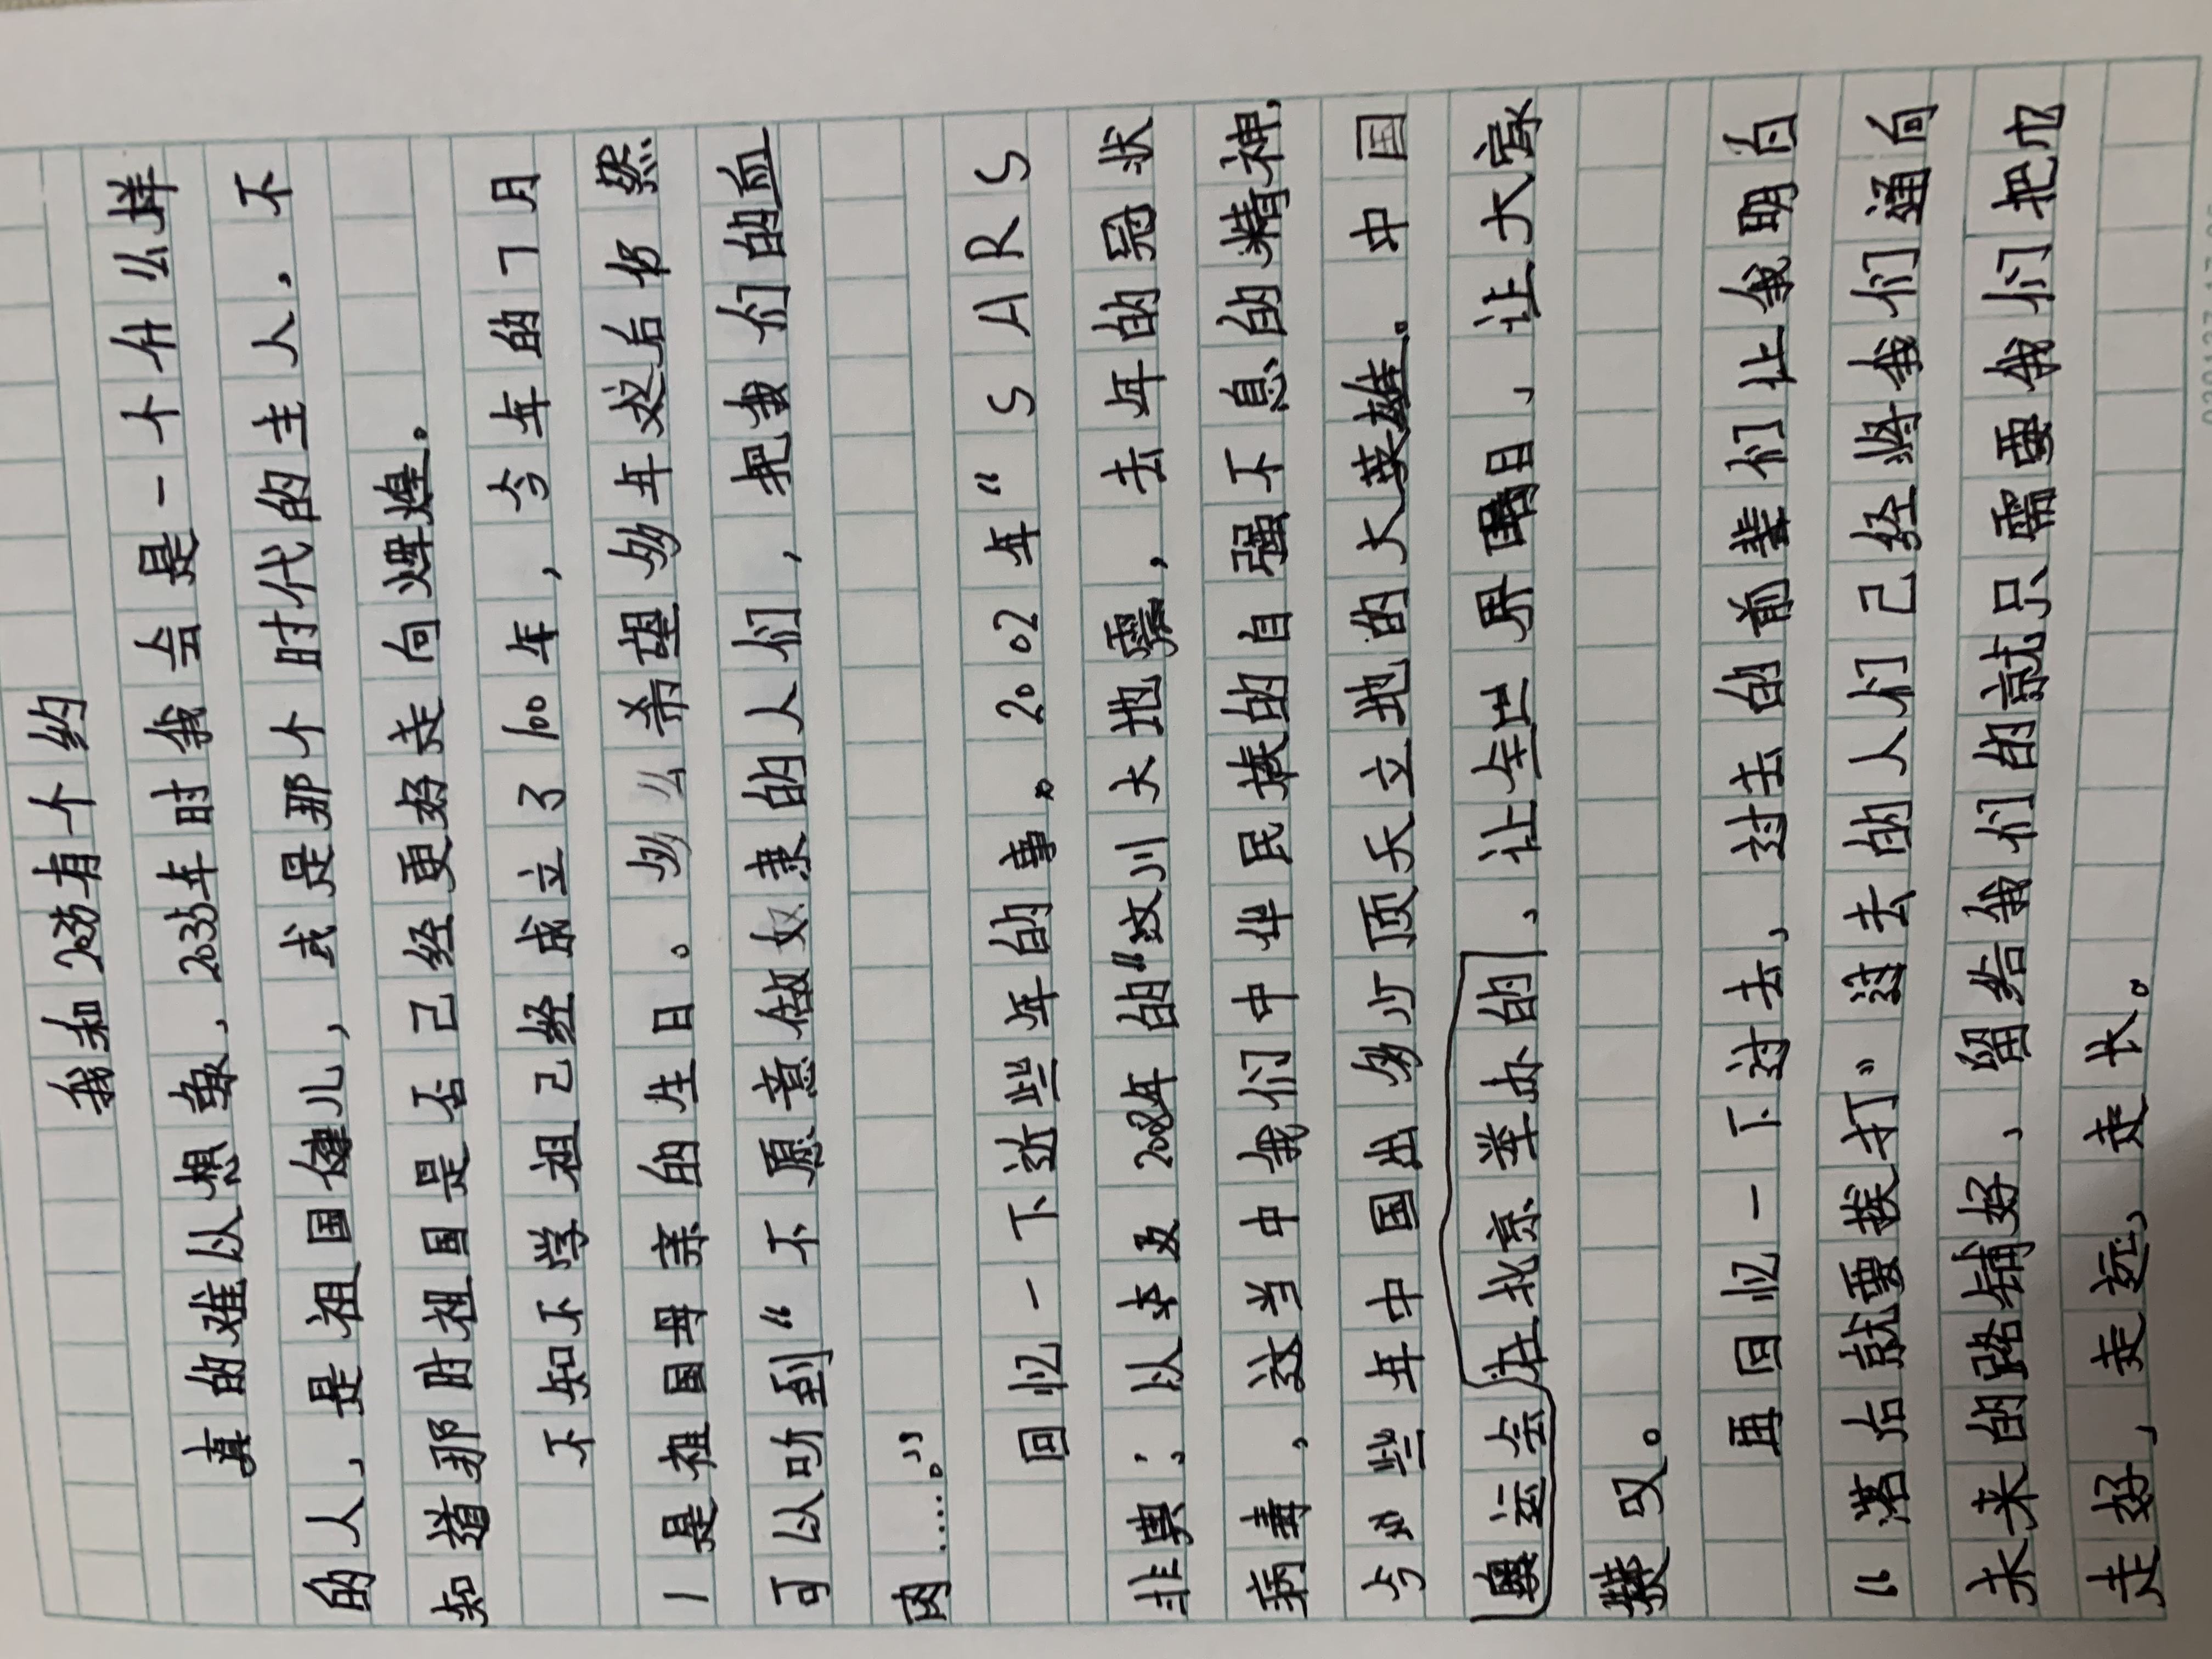 我和2035有个约
真的难以想象，2035年时我会是一个什么样
的人，是祖国健儿，或是那个时代的主人，不
知道那时祖国是否己经更好走向辉煌。
不知不学祖己经成立了100年，今年的7月
1是祖国母亲的生日。多么希望多年这后仍然
可以听到“不愿意做奴隶的人们，把我们的血
肉……。”
回忆一下近些年的事。2002年“SARS
非典；以及2008年的“汶川大地震，去年的冠状
病毒，这当中我们中华民族的自强不息的精神，
今些年中国出多少顶天立地的大英雄。中国
奥运会在北京举办的，让全世界瞩目，让大家
赞叹。
再回忆一下过去，过去的前辈们让我明白
“落后就要挨打”过去的人们己经将我们通向
未来的路铺好，留给我们的就只需要我们把它
走好，走远，走长。